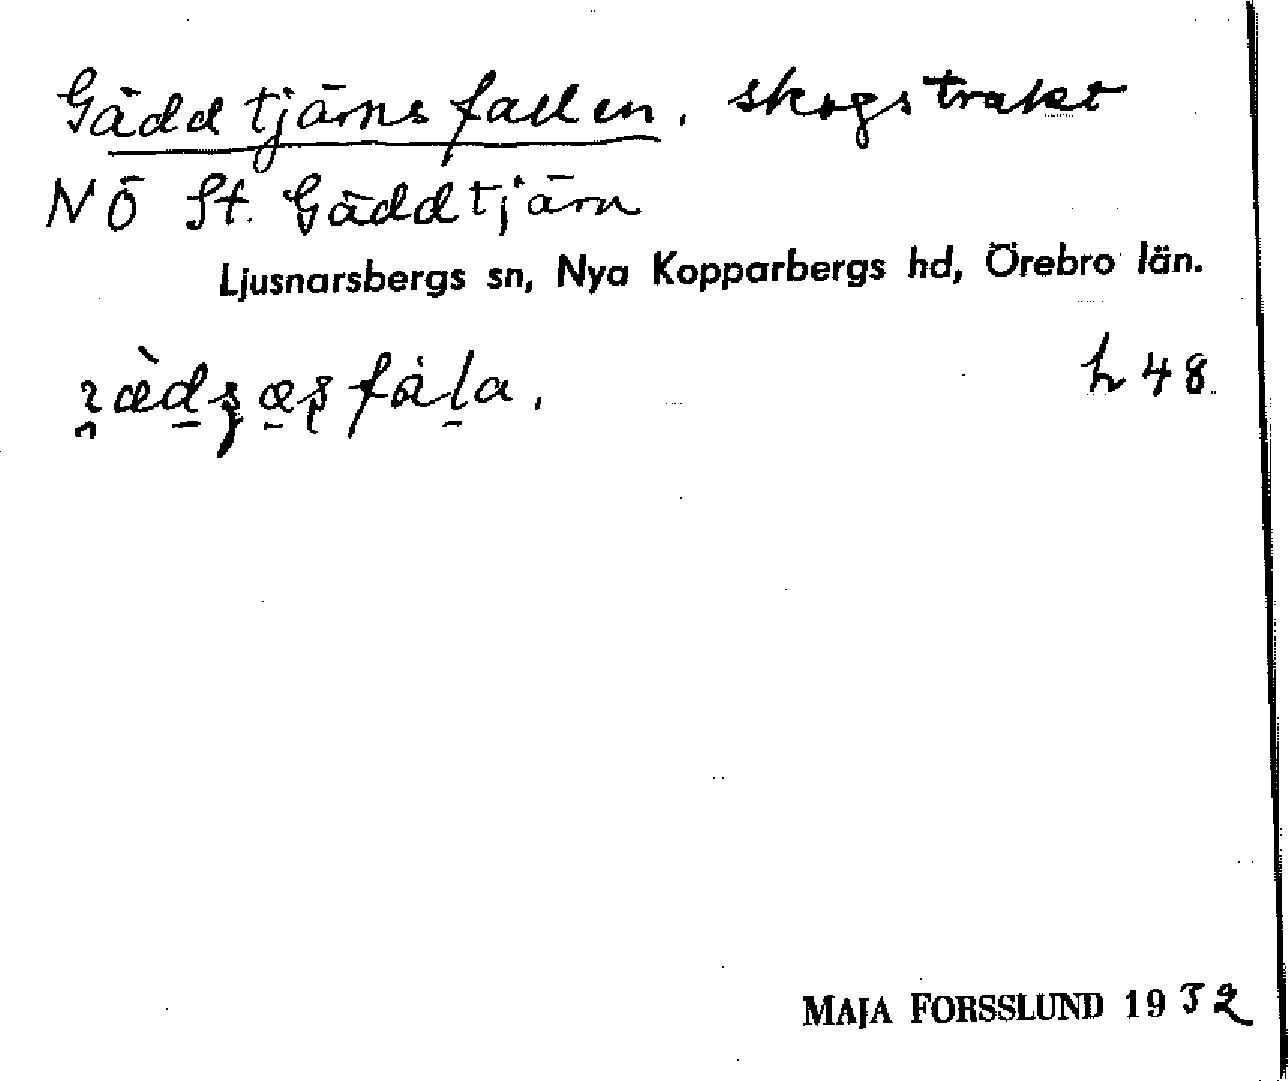 Gäddtjärnsfallen, skogstrakt
NÖ St. Gäddtjärn
Ljusnarsbergs sn, Nya Kopparbergs hd, Örebro län.
h 48.
MAJA FORSSLUND 1952